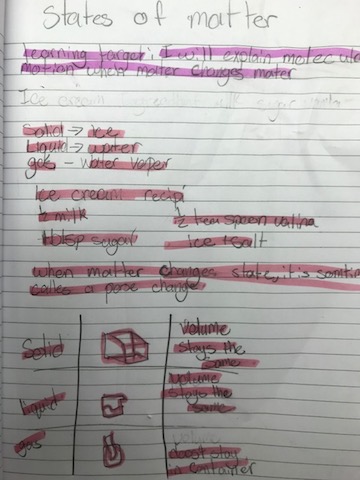 States of matter
Learning target: I will explain molecula
motion when matter changes mater
Ice cream
Solid → ice
Liquid → water
gas - water vaper
Ice cream recipi
½ milk ½ tem speen vallina
1 tblsp sugar Ice + salt
when matter changes state, it's somtim
calles a pase change
Solid Volume
stays the
same
liquid volume
stays the
same
gas volume
doesn't stay
in container